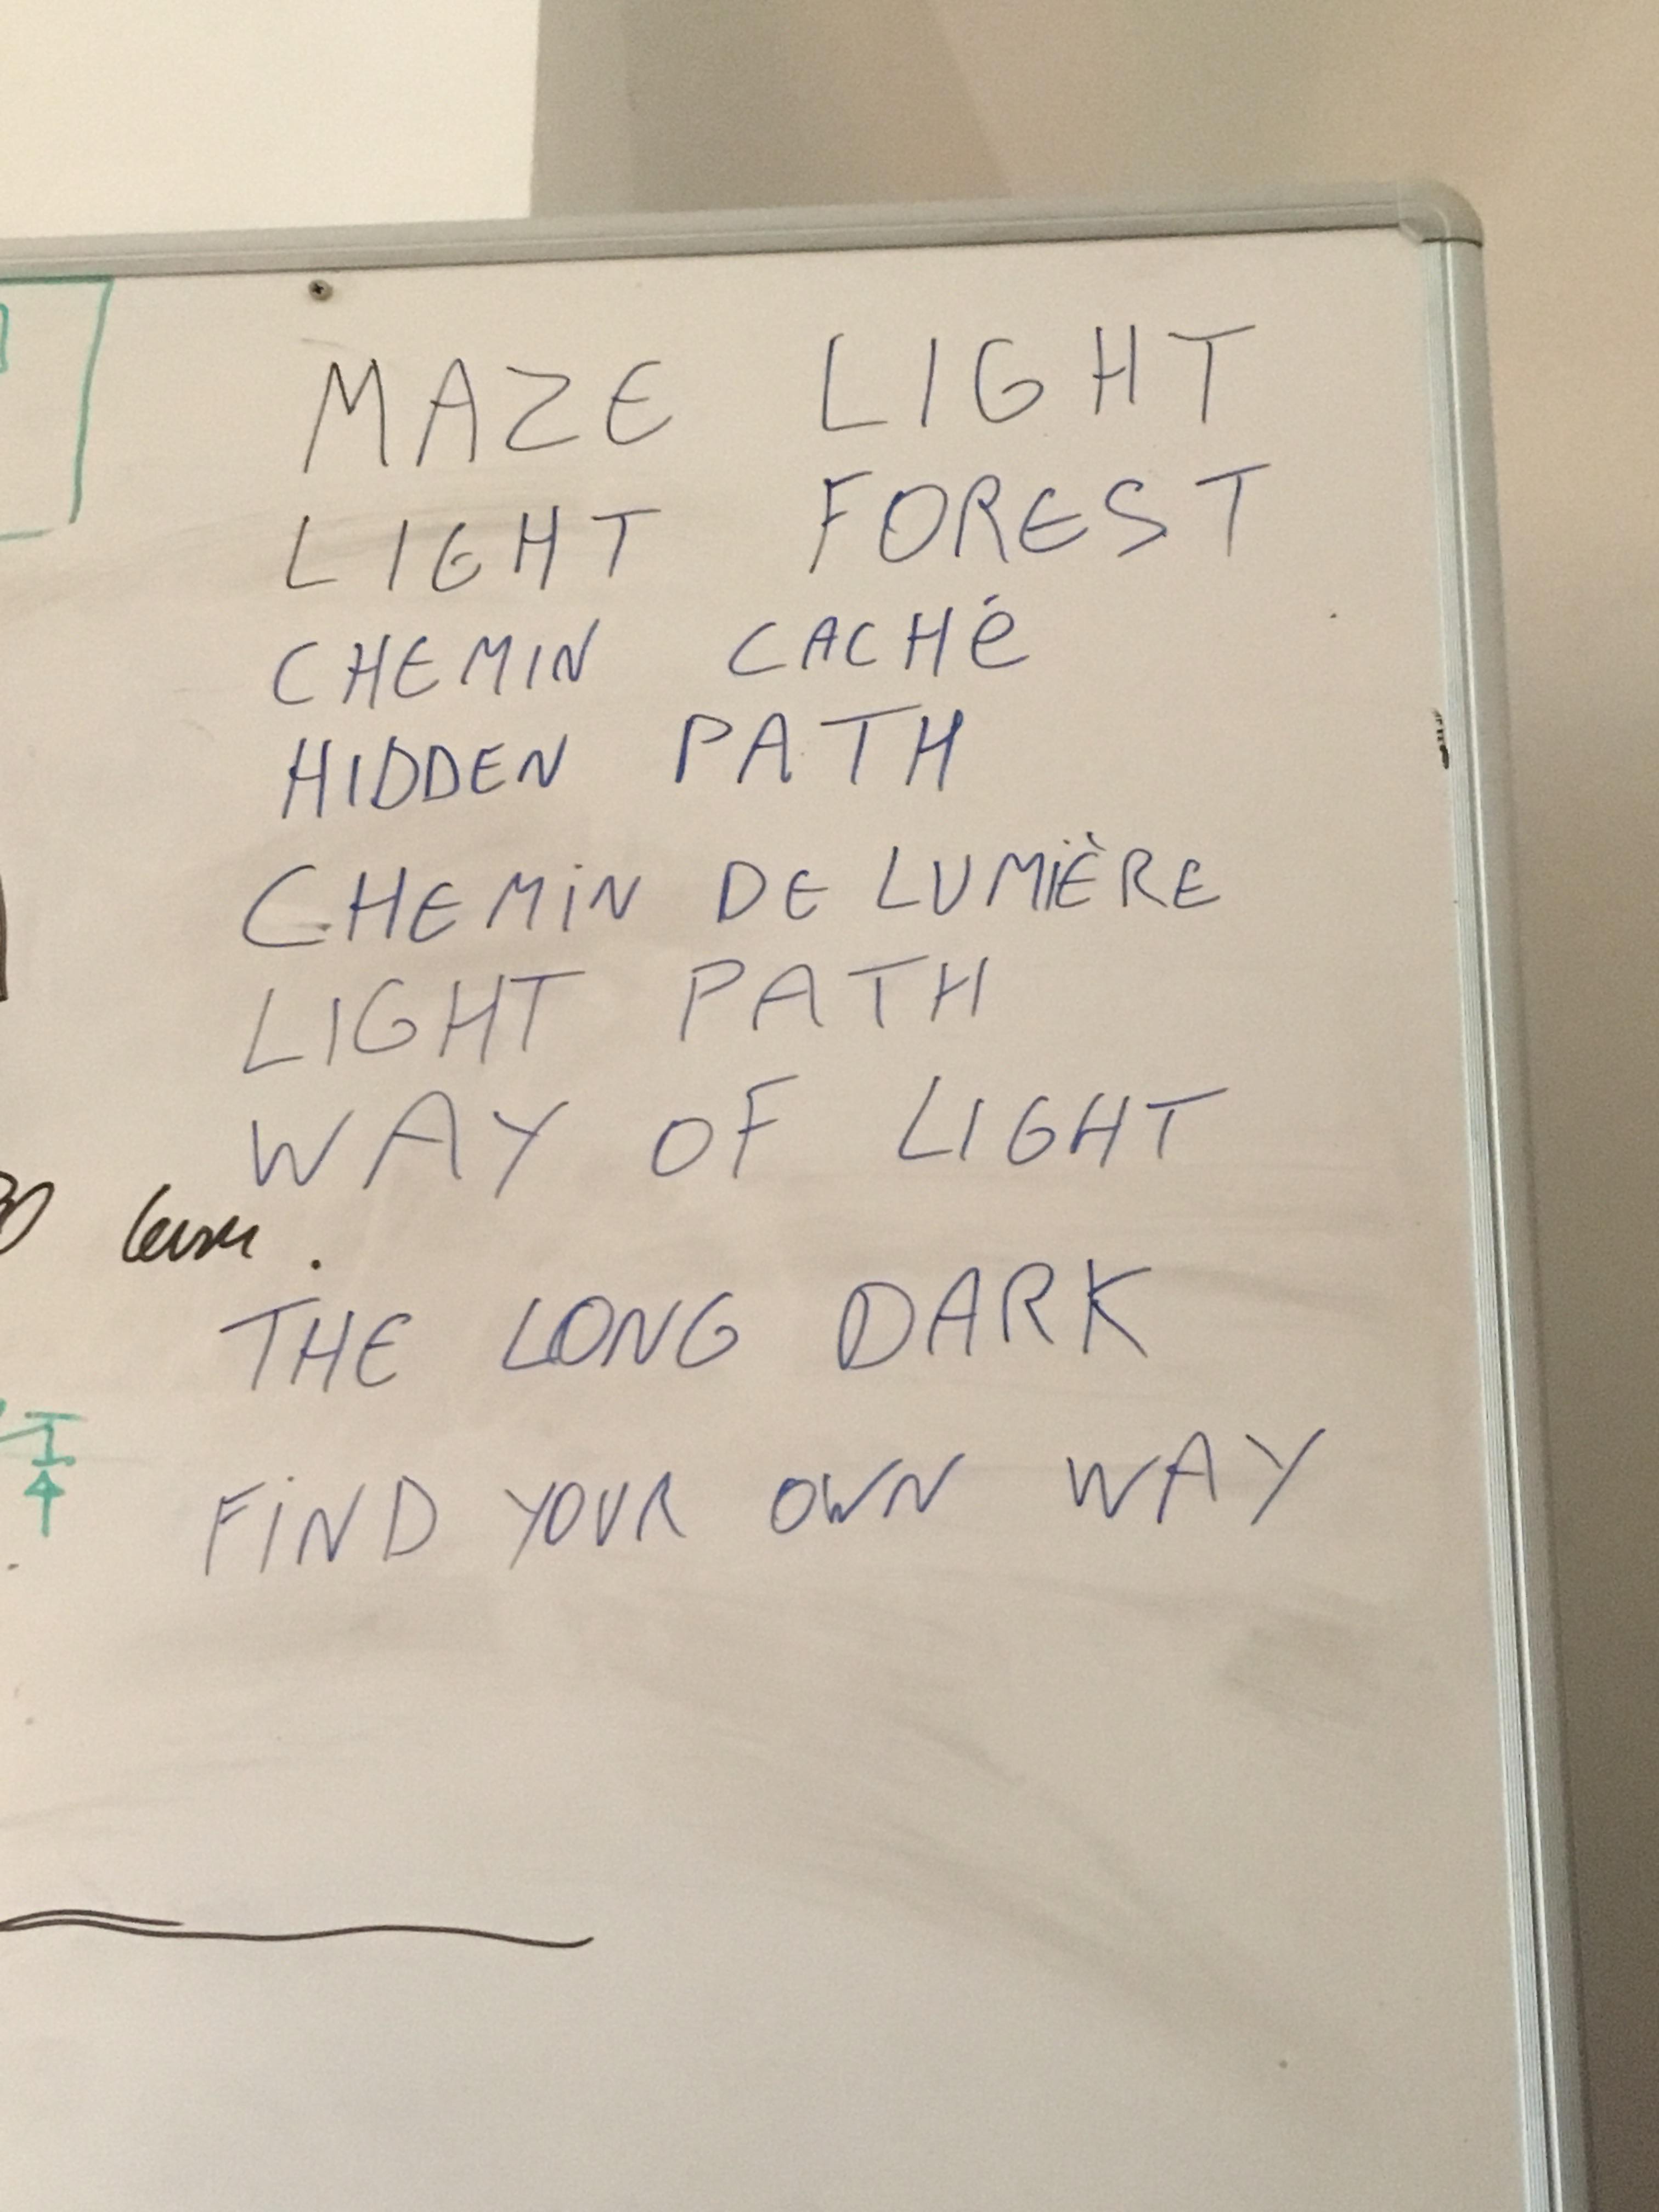 MAZE LIGHT
LIGHT FOREST
CHEMIN CACHÉ
HIDDEN PATH
CHEMIN DE LUMIÈRE
LIGHT PATH
WAY OF LIGHT
THE LONG DARK
FIND YOUR OWN WAY